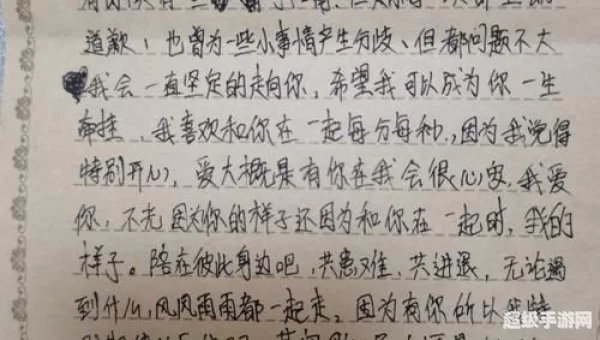 道歉，也曾为一些小事情产生分歧、但都问题不大
我会一直坚定的走向你，希望我可以成为你一生
牵挂，我喜欢和你在一起每分每秒，因为我觉得
特别开心，爱大概是有你在我会很心安，我爱
你，不光因为你的样子还因为和你在一起时，我的
样子。陪在彼此身边吧，共患难，共进退，无论遇
到什么，风风雨雨都一起走，因为有你所以我
超级手游网